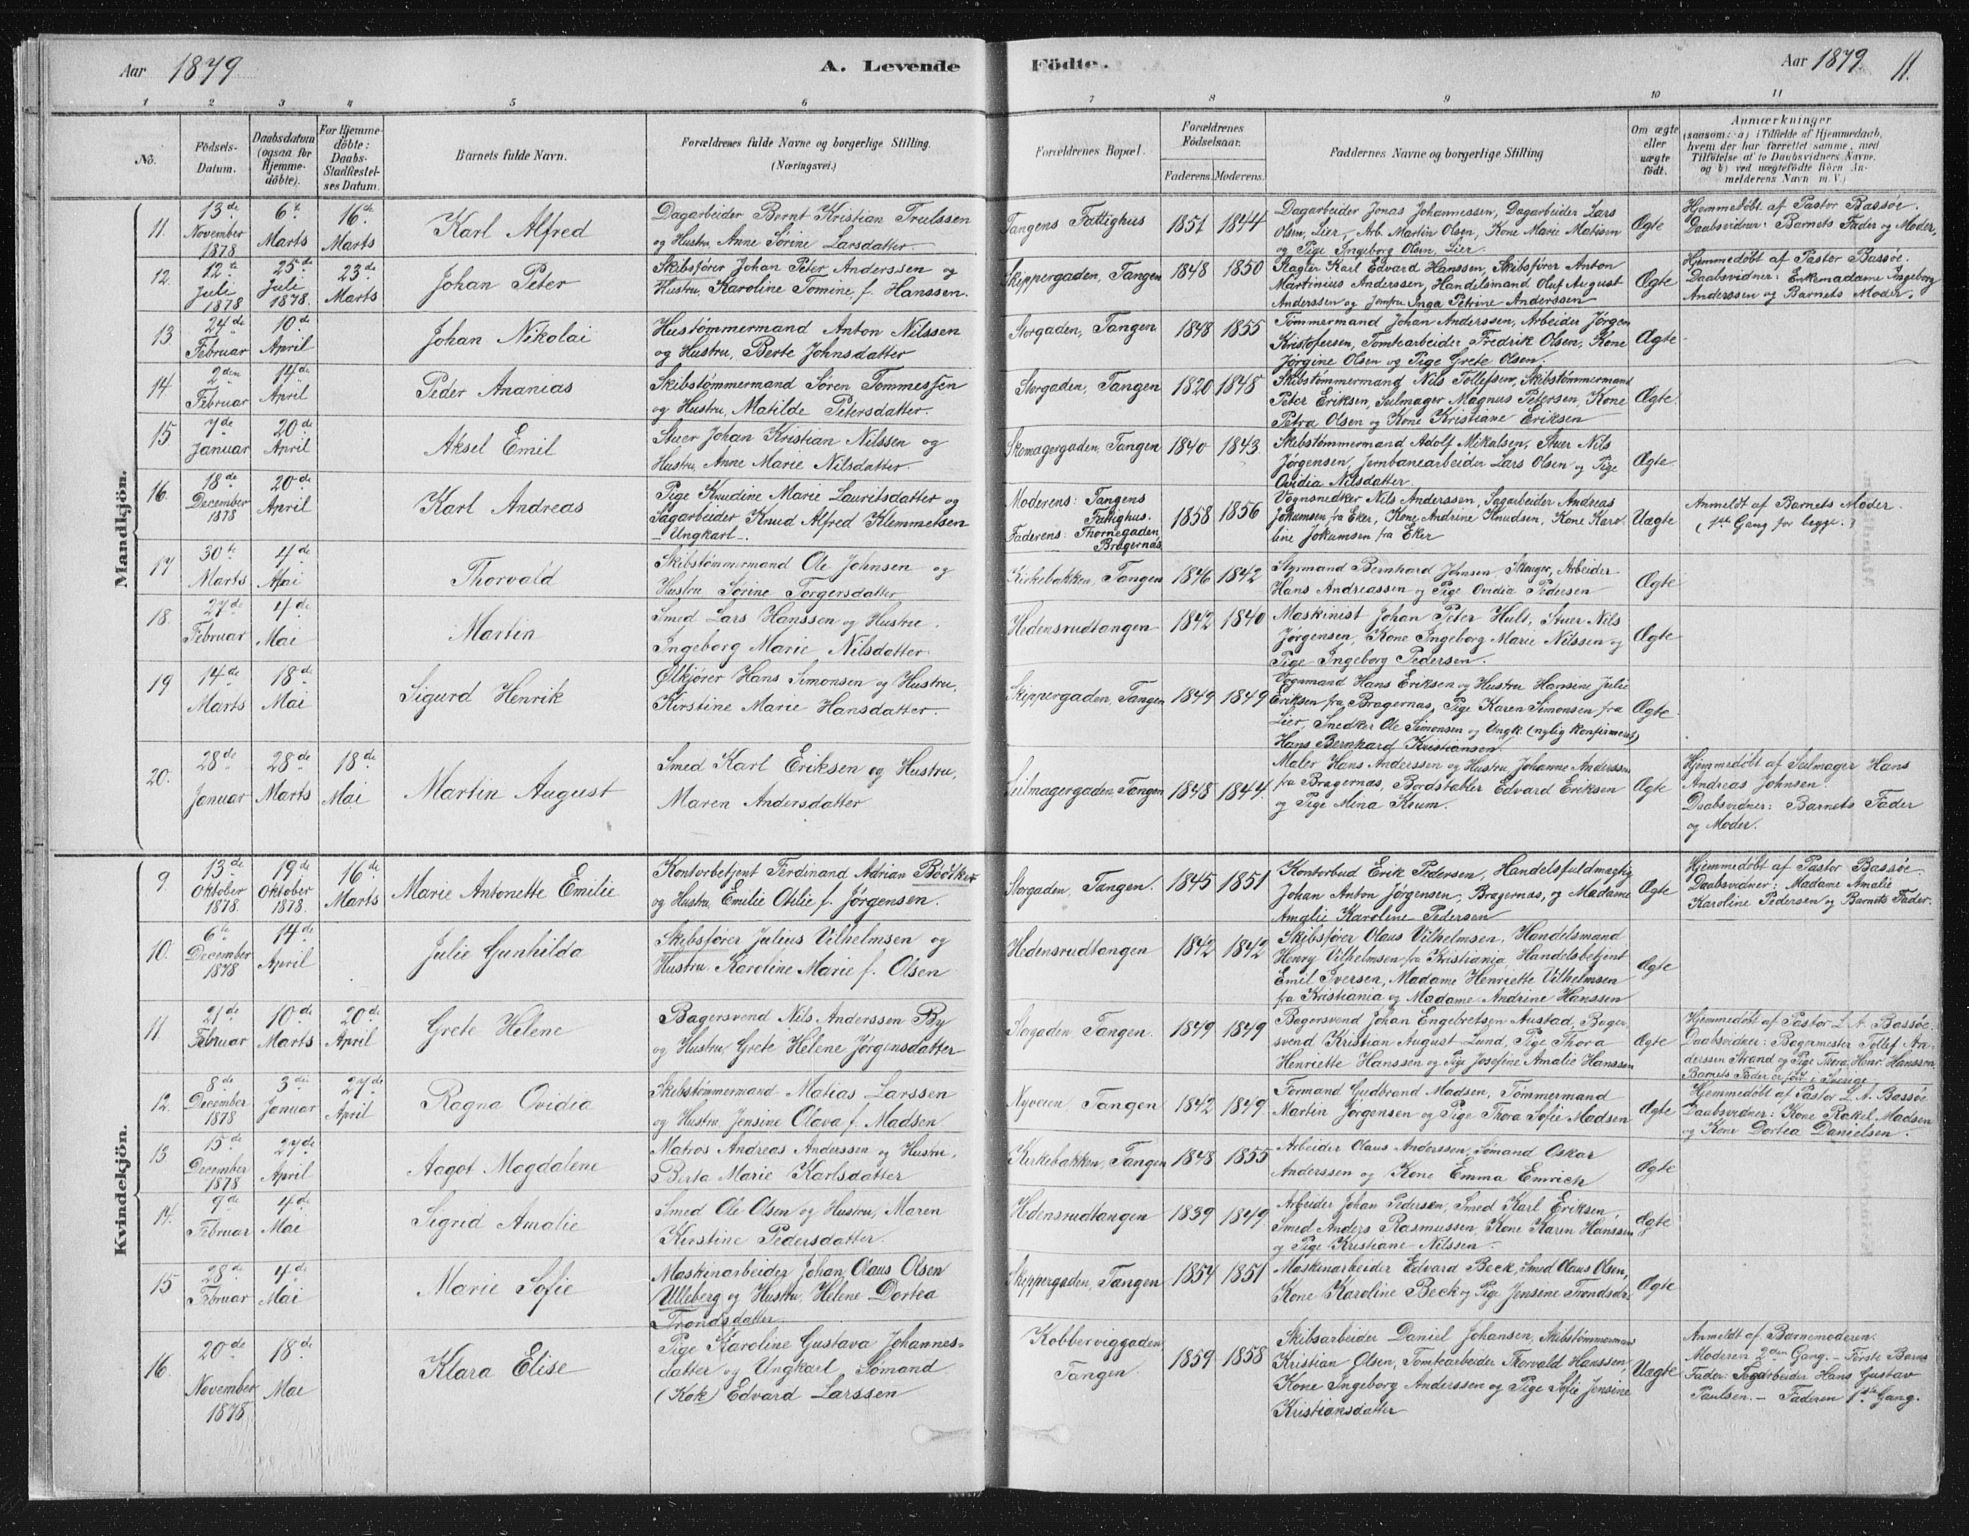 Aar 1879
A. Levende
Födte.
Aar 1879
11.
1 2 3 4 5 6 7 8 9 10 11
No.
Födsels-
Datum.
Daabsdatum
(ogsaa for
Hjemme-
döbte).
For Hjemme-
döbte:
Daabs-
Stadfæstel-
ses Datum.
Barnets fulde Navn.
Forældrenes fulde Navne og borgerlige Stilling
(Næringsvei.)
Forældrenes Bopæl.
Forældrenes
Födselsaar.
Faderens. Moderens.
Faddernes Navne og borgerlige Stilling
Om ægte
eller
uægte
födt.
Anmærkninger
(saasom: a) i Tilfælde af Hjemmedaab,
hvem der har forrettet samme, med
Tilföielse af to Daabsvidners Navne.
og b) ved uægtefödte Börn An-
melderens Navn m. V.)
Mandkjön.
11.
13de
November
1878
6te
Marts
16de
Marts
Karl Alfred
Dagarbeider Bernt Kristian Truelssen
og Hustru, Anne Sørine Larsdatter.
Tangens Fattighus
1851
1844
Dagarbeider Jonas Johannessen, Dagarbeider Lars
Olsen, Lier, Arb. Martin Olsen, Kone Marie Matisen
og Pige Ingeborg Olsen, Lier
Ægte
Hjemmedøbt af Pastor Bassøe.
Daabsvidner: Barnets Fader og Moder.
12.
12te
Juli
1878
25de
Juli
1878.
23de
Marts
Johan Peter
Skibsfører Johan Peter Anderssen og
Hustru, Karoline Tomine, f. Hanssen.
Skippergaden, Tangen
1848
1850
Slagter Karl Edvard Hanssen, Skibsfører Anton
Martinius Anderssen, Handelsmand Oluf August
Anderssen og Jomfru Inga Petrine Anderssen
Ægte
Hjemmedøbt af Pastor Bassøe.
Daabsvidner: Enkemadame Ingeborg
Anderssen og Barnets Moder.
13.
24de
Februar
10de
April
Johan Nikolai
Hustømmermand Anton Nilssen
og Hustru, Berte Johnsdatter
Storgaden, Tangen
1848
1855
Tømmermand Johan Anderssen, Arbeider Jørgen
Kristofersen, Tomtearbeider Fredrik Olsen, Kone
Jørgine Olsen og Pige Grete Olsen.
Ægte
14
2den
Februar
14de
April
Peder Ananias
Skibstømmermand Søren Tommessen
og Hustru, Matilde Petersdatter.
Storgaden, Tangen
1820
1848
Skibstømmermand Nils Tollefsen, Skibstømmermand
Peter Eriksen, Seilmager Magnus Petersen, Kone
Petra Olsen og Kone Kristiane Eriksen
Ægte.
15
7de
Januar
20de
April
Aksel Emil
Stuer Johan Kristian Nilssen og
Hustru, Anne Marie Nilsdatter.
Skomagergaden, Tangen
1840
1843
Skibstømmermand Adolf Mikalsen, Stuer Nils
Jørgensen, Jernbanearbeider Lars Olsen og Pige
Ovidia Nilsdatter.
Ægte.
16.
18de
December
1878
20de
April
Karl Andreas
Pige Knudine Marie Lauritsdatter og
Sagarbeider Knud Alfred Klemmetsen
Ungkarl.
Moderens: Tangens
Fattighus.
Faderens: Thornegaden,
Bragernæs
1858
1856
Vognsnedker Nils Anderssen, Sagarbeider Andreas
Jokumsen fra Eker, Kone Andrine Knudsen, Kone Karo-
line Jokumsen fra Eker
Uægte
Anmeldt af Barnets Moder.
(1ste Gang for begge.)
17
30te
Marts
4de
Mai
Thorvald
Skibstømmermand Ole Johnsen og
Hustru Sørine Torgersdatter
Kirkebakken, Tangen
1846
1842
Styrmand Bernhard Johnsen, Skauger, Arbeider
Hans Andreassen og Pige Ovidia Pedersen
Ægte
18.
27de
Februar
4de
Mai
Martin
Smed Lars Hanssen og Hustru.
Ingeborg Marie Nilsdatter
Hedensrudtangen
1842
1840
Maskinist Johan Peter Hult, Stuer Nils
Jørgensen, Kone Ingeborg Marie Nilssen og
Pige Ingeborg Pedersen.
Ægte
19
14de
Marts
18de
Mai
Sigurd Henrik
Ølkjører Hans Simonsen og Hustru,
Kirstine Marie Hansdatter.
Skippergaden, Tangen
1849
1849
Vognmand Hans Eriksen og Hustru Hansine Julie
Eriksen fra Bragernæs, Pige Karen Simonsen fra
Lier, Snedker Ole Simonsen og Ungk. (nylig konfirmeret)
Hans Bernhard Kristiansen.
Ægte
20.
28de
Januar
28de
Marts
18de
Mai
Martin August
Smed Karl Eriksen og Hustru,
Maren Andersdatter
Seilmagergaden, Tangen
1848
1844.
Maler Hans Anderssen og Hustru Johanne Anderssen
fra Bragernæs, Bordstabler Edvard Eriksen
og Pige Mina Krum.
Ægte
Hjemmedøbt af Seilmager Hans
Andreas Johnsen.
Daabsvidner: Barnets Fader
og Moder.
Kvindekjön.
9.
13de
Oktober
1878
19de
Oktober
1878.
16de
Marts
Marie Antonette Emilie
Kontorbetjent Ferdinand Adrian Bödtker
og Hustru, Emilie Otilie f. Jørgensen.
Storgaden, Tangen.
1845
1851
Kontorbud Erik Pedersen, Handelsfuldmægtig
Johan Anton Jørgensen, Bragernæs, og Madame
Amalie Karoline Pedersen
Ægte
Hjemmedøbt af Pastor Bassøe.
Daabsvidner: Madame Amalie
Karoline Pedersen og Barnets Fader.
10.
6te
December
1878
14de
April
Julie Gunhilda
Skibsfører Julius Vilhelmsen og
Hustru Karoline Marie f. Olsen
Hedensrudtangen
1842
1842
Skibsfører Olaus Vilhelmsen, Handelsmand
Henry Vilhelmsen fra Kristiania, Handelsbetjent
Emil Iversen, Madame Henriette Vilhelmsen
fra Kristiania og Madame Andrine Hanssen
Ægte
11
21de
Februar
10de
Marts
20de
April
Grete Helene
Bagersvend Nils Anderssen By
og Hustru, Grete Helene Jørgensdatter
Tangen.
1849
1849
Bagersvend Johan Engebretsen Austad, Bager-
svend Kristian August Lund, Pige Thora
Henriette Hanssen og Pige Josefine Amalie Hanssen
Ægte
Hjemmedøbt af Pastor L. A. Bassøe.
Daabsvidner: Bagermester Tollef An-
derssen Strand og Pige Thora Henr. Hanssen
Barnets Fader er født i Sverige.
12.
8de
December
1878
3die
Januar
27de
April
Ragna Ovidia
Skibstømmermand Matias Larssen
og Hustru, Jensine Olava f. Madsen
Nyveien Tangen
1842
1849
Formand Gudbrand Madsen, Tømmermand
Martin Jørgensen og Pige Thora Sofie Madsen
Ægte
Hjemmedøbt af Pastor L. A. Bassøe
Daabsvidner: Kone Rakel Madsen
og Kone Dortea Danielsen.
13.
15de
December
1878
27de
April
Aagot Magdalene
Matros Andreas Anderssen og Hustru,
Berta Marie Karlsdatter
Kirkebakken, Tangen
1848
1855
Arbeider Olaus Anderssen, Sømand Oskar
Anderssen og Kone Emma Emrich
Ægte
14.
9de
Februar
4de
Mai
Sigrid Amalie
Smed Ole Olsen og Hustru, Maren
Kirstine Pedersdatter.
Hedensrudtangen
1839
1849
Arbeider Johan Pedersen, Smed Karl Eriksen,
Smed Anders Rasmussen, Kone Karen Hanssen
og Pige Kristiane Nilssen.
Ægte
15
28de
Februar
4de
Mai
Marie Sofie
Maskinarbeider Johan Olaus Olsen
Ulleberg og Hustru, Helene Dortea
Trondsdatter
Skippergaden, Tangen
1854
1851
Maskinarbeider Edvard Beck, Smed Olaus Olsen,
Kone Karoline Beck og Pige Jensine Trondsdr.
Ægte
16.
20de
November
1878
18de
Mai
Klara Elise
Pige Karoline Gustava Johannes-
datter og Ungkarl Sømand
(Kok) Edvard Larssen
Kobberviggaden
Tangen
1859
1858
Skibsarbeider Daniel Johansen, Skibstømmermand
Kristian Olsen, Tomtearbeider Thorvald Hanssen,
Kone Ingeborg Anderssen og Pige Sofie Jensine
Kristiansdatter
Uægte
Anmeldt af Barnemoderen.
Moderen 2den Gang. - Første Barns
Fader: Sagarbeider Hans Gustav
Paulsen. - Faderen 1ste Gang.